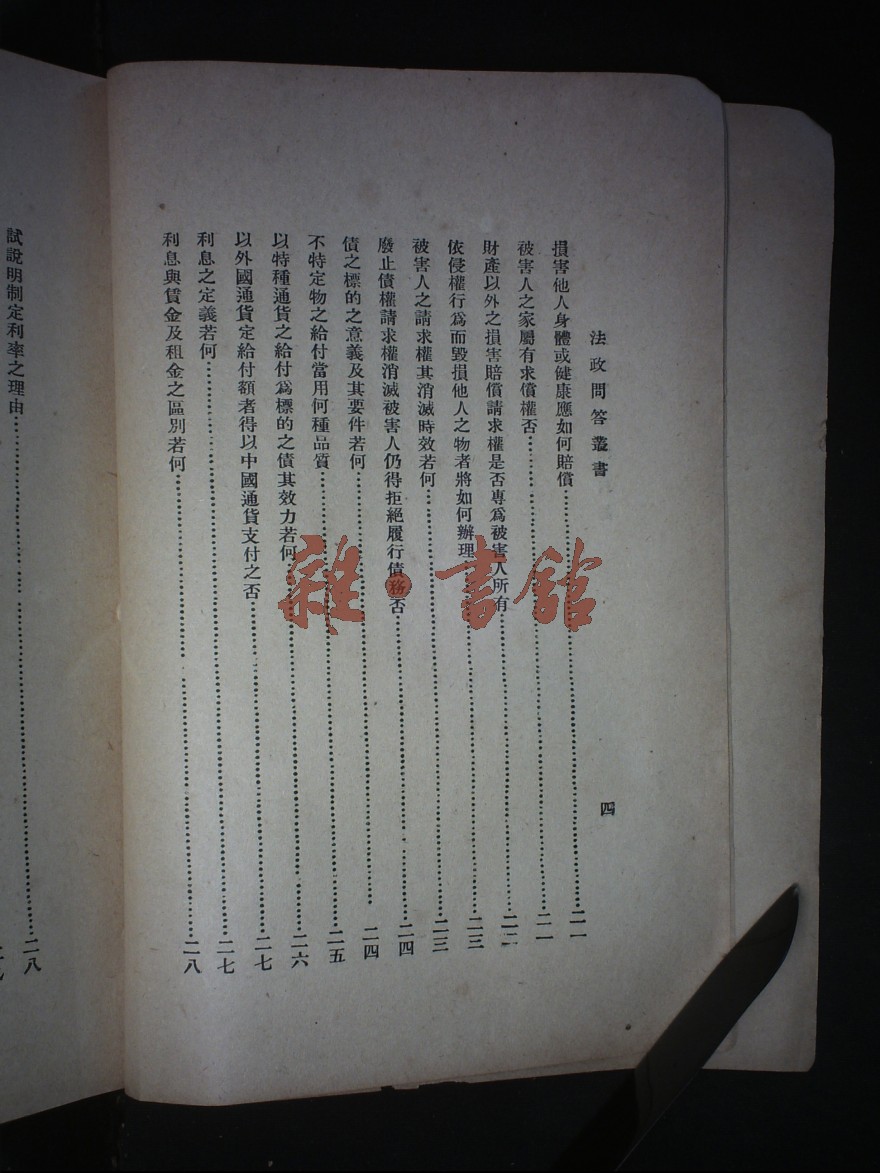 法政問答叢書
四
損害他人身體或健康應如何賠償……二一
被害人之家屬有求償權否……二一
財產以外之損害賠償請求權是否專爲被害人所有……二二
依侵權行爲而毀損他人之物者將如何辦理……二三
被害人之請求權其消滅時效若何……二三
廢止債權請求權消滅被害人仍得拒絕履行債務否……二四
債之標的之意義及其要件若何……二四
不特定物之給付當用何種品質……二五
以特種通貨之給付爲標的之債其效力若何……二六
以外國通貨定給付額者得以中國通貨支付之否……二七
利息之定義若何……二七
利息與賃金及租金之區別若何……二八
試說明制定利率之理由……二八
雜·書館